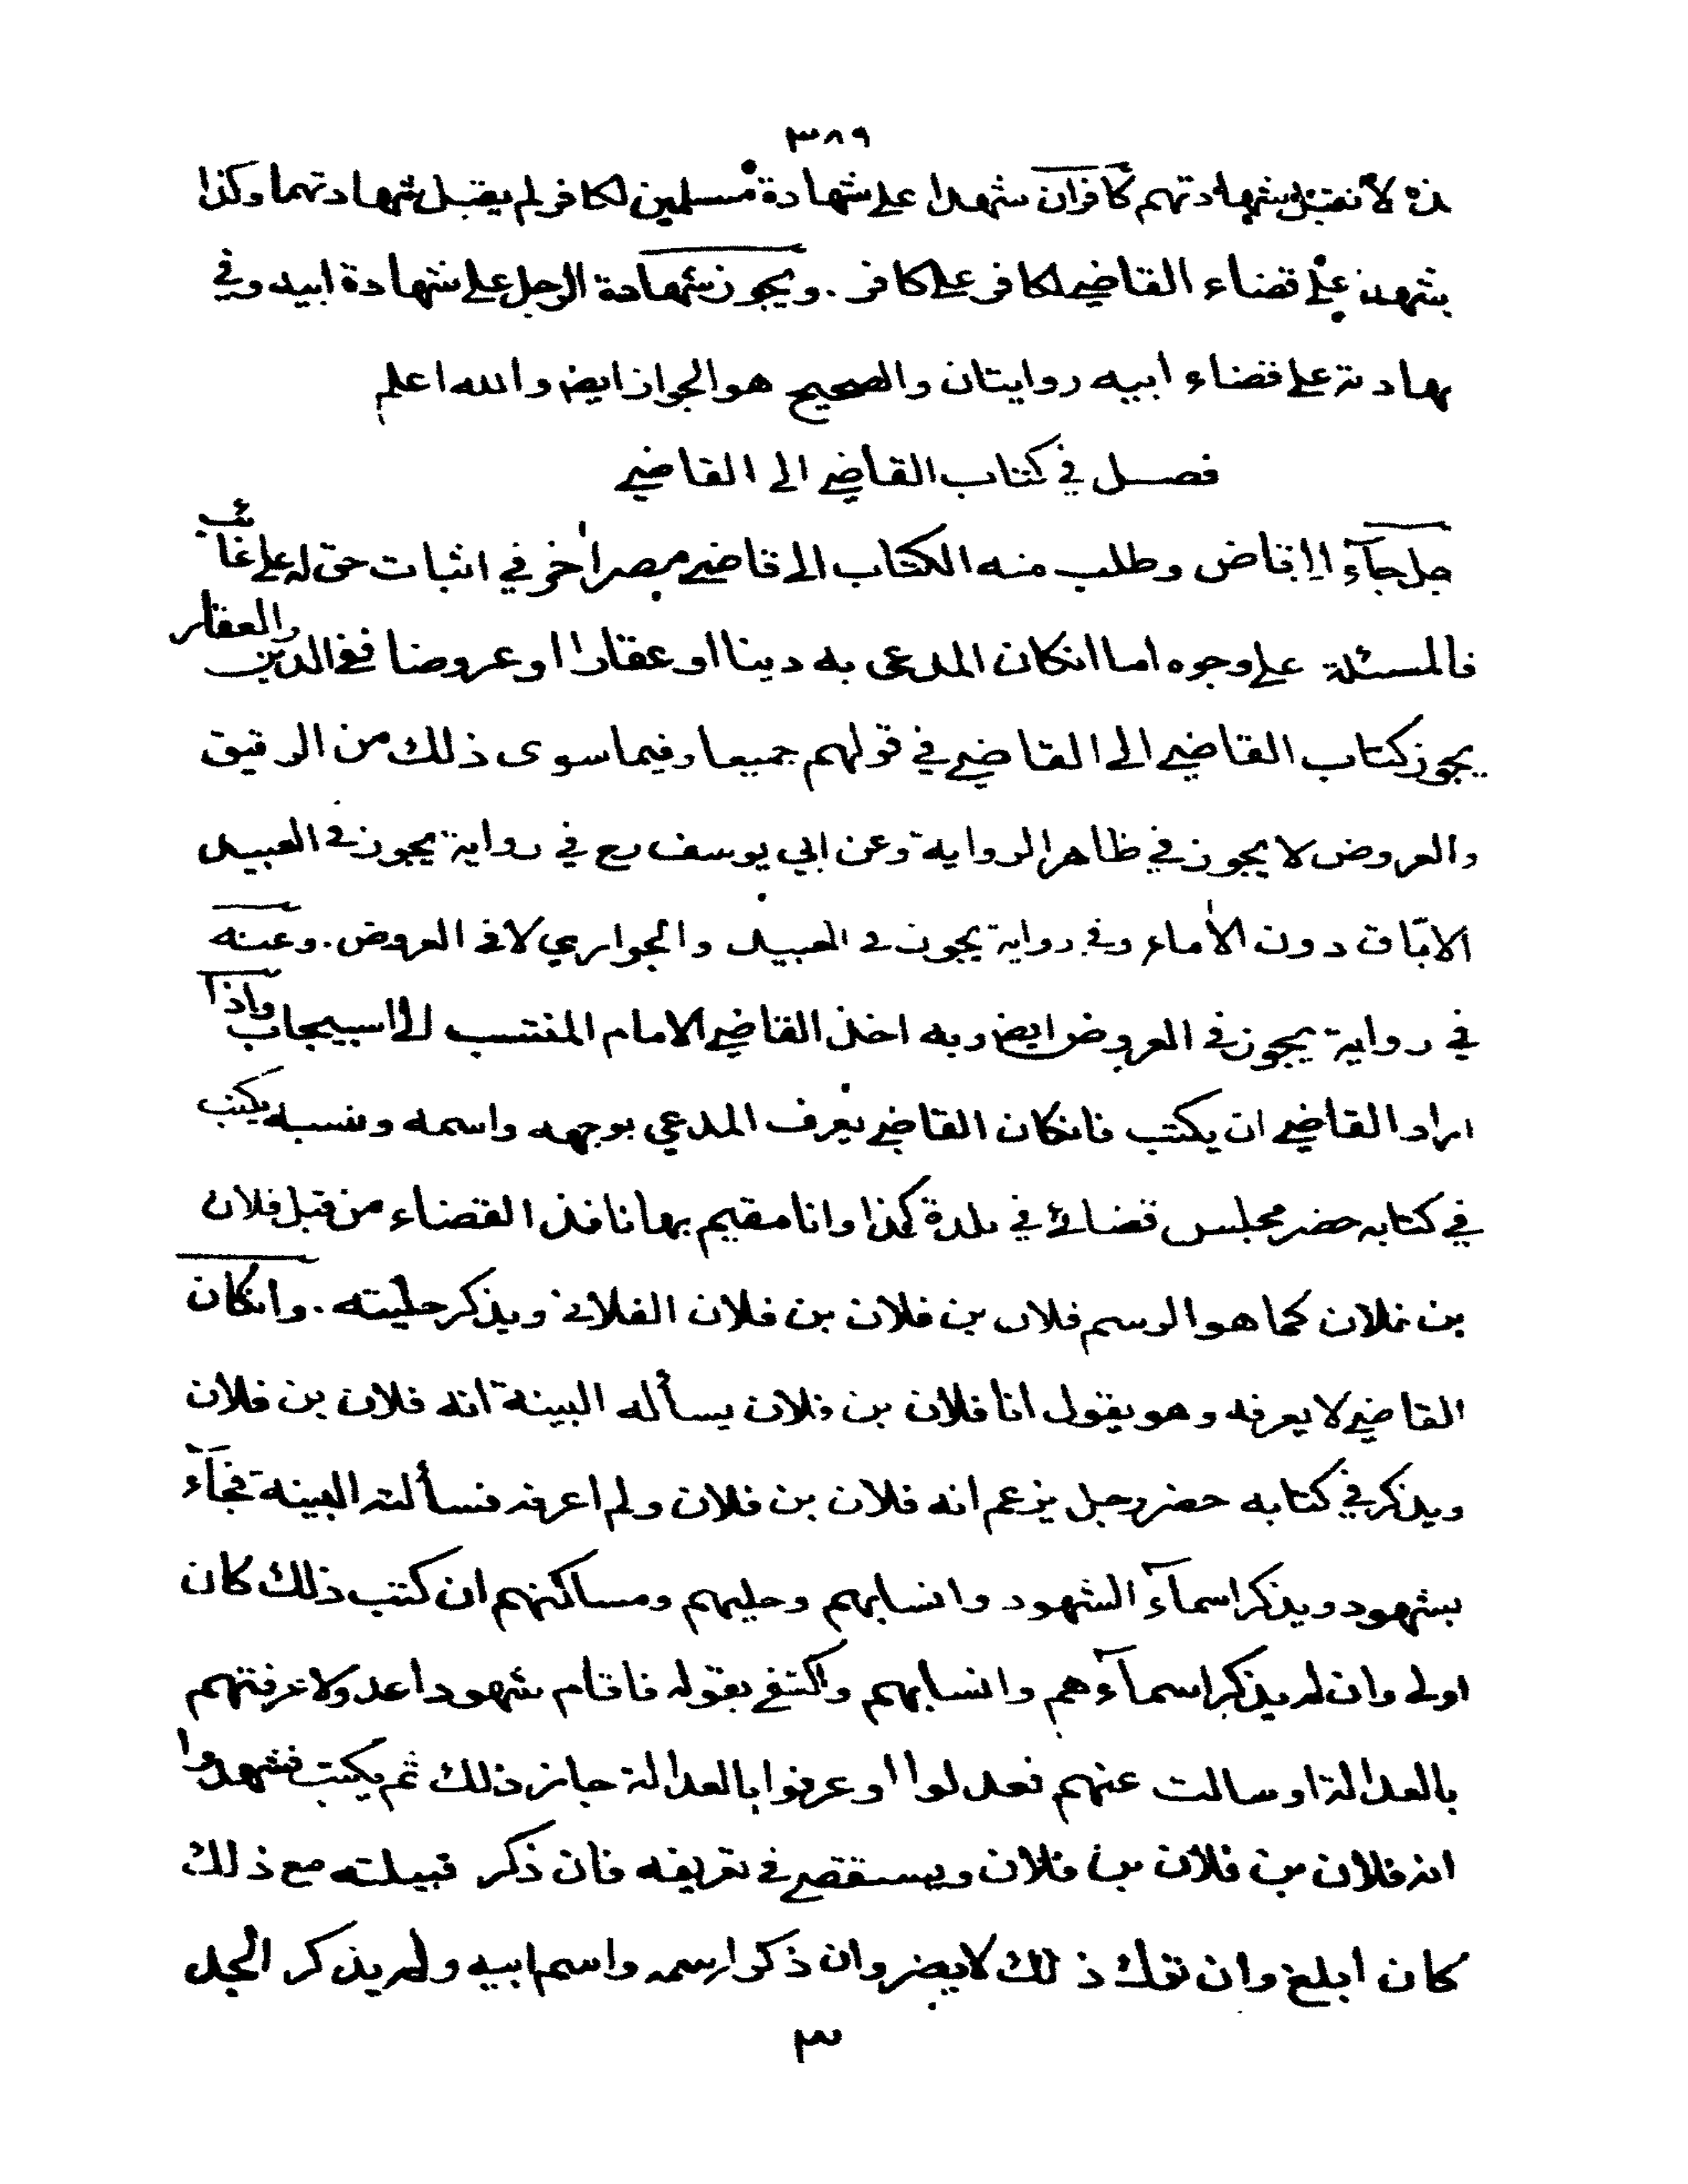 ٣٨٩
لا تقبل شهادتهم كافران شهدا على شهادة مسلمين لكافر لم يقبل شهادتهما وكذا
على قضاء القاضي لكافر على كافر . ويجوز شهادة الرجل على شهادة ابيه وفي
على قضاء ابيه روايتان والصحيح هو الجواز ايض والله اعلم
فصل في كتاب القاضي الى القاضي
جل جآء الى قاض وطلب منه الكتاب الى قاضي مصر اخر في اثبات حق له على غائب
فالمسئلة على وجوه اما انكان المدعى به دينا او عقارا او عروضا ففي الدين والعقار
يجوز كتاب القاضي الى القاضي في قولهم جميعا وفيما سوى ذلك من الرقيق
والعروض لا يجوز في ظاهر الرواية وعن ابي يوسف رح في رواية يجوز في العبيد
الاباق دون الاماء وفي رواية يجوز في العبيد والجواري لا في العروض . وعنه
في رواية يجوز في العروض ايض وبه اخذ القاضي الامام المنتسب الى اسبيجاب واذا
اراد القاضي ان يكتب فانكان القاضي يعرف المدعي بوجهه واسمه ونسبه يكتب
في كتابه حضر مجلس قضائي في بلدة كذا وانا مقيم بها نافذ القضاء من قبل فلان
بن فلان كما هو الرسم فلان بن فلان بن فلان الفلاني ويذكر حليته . وانكان
القاضي لا يعرفه وهو يقول انا فلان بن فلان يسأله البينة انه فلان بن فلان
ويذكر في كتابه حضر رجل يزعم انه فلان بن فلان ولم اعرفه فسألته البينة فجآء
بشهود ويذكر اسمآء الشهود وانسابهم وحليهم ومساكنهم ان كتب ذلك كان
اولى وان لم يذكر اسمآءهم وانسابهم واكتفى بقوله فاقام شهودا عدولا عرفتهم
بالعدالة او سالت عنهم فعدلوا او عرفوا بالعدالة جاز ذلك ثم يكتب فشهدوا
انه فلان بن فلان بن فلان ويستقصي في تعريفه فان ذكر قبيلته مع ذلك
كان ابلغ وان ترك ذلك لا يضر وان ذكر اسمه واسم ابيه ولم يذكر الجد